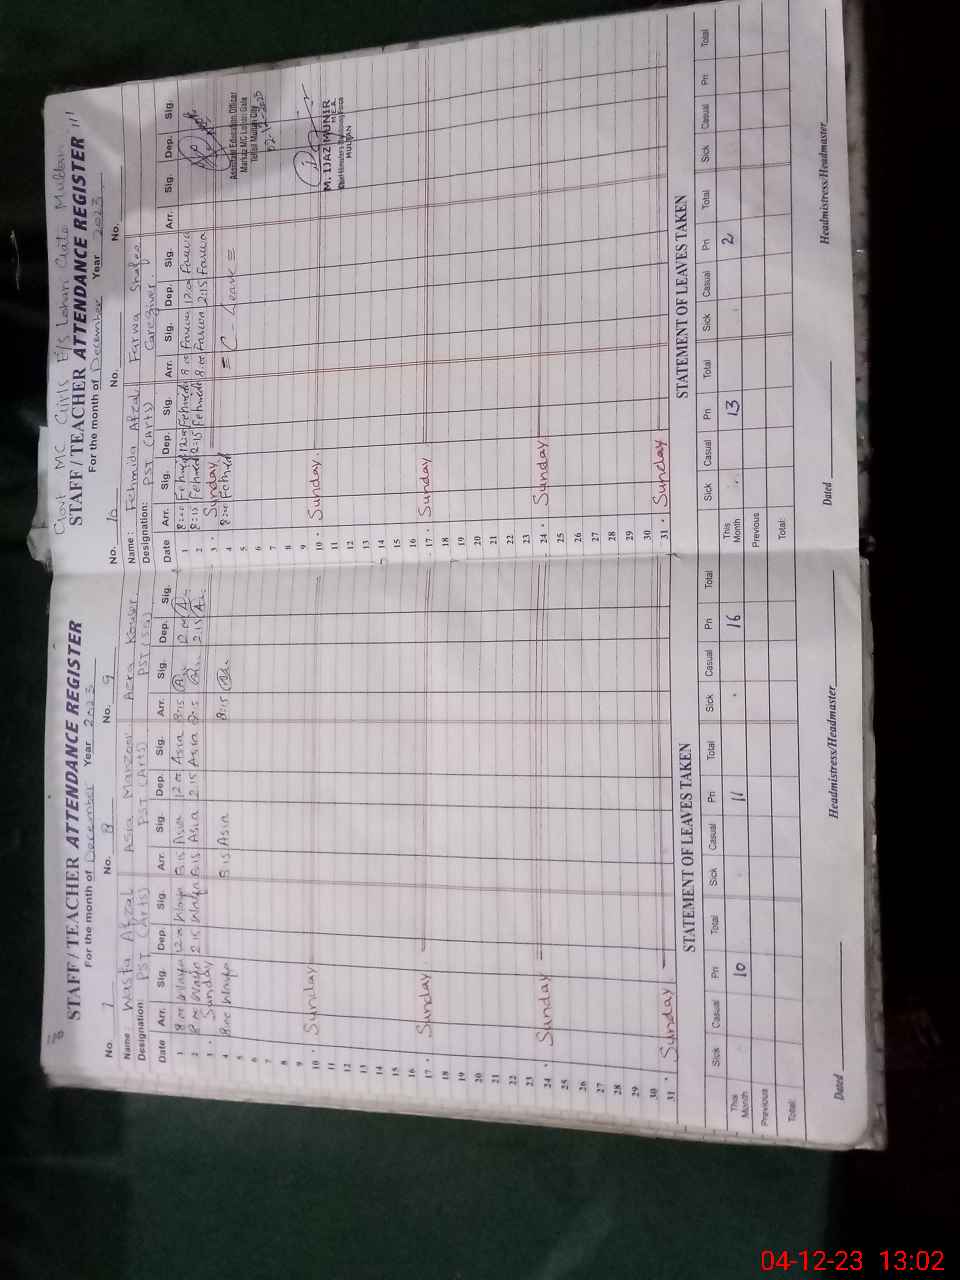 STAFF / TEACHER ATTENDANCE REGISTER
For the month of December Year 2023
No. 7 No. 8 No. 9
Name: Asia Azra Kousar
Designation: PST (Arts) PST (Arts) PST
Date Arr. Sig. Dep. Sig. Arr. Sig. Dep. Sig. Arr. Sig. Dep. Sig.
1 8 00 12 00 8:15 Asia 12 00 Asia 8:15 12 00
2 8 00 2 15 8:15 Asia 2 15 Asia 8:15 2:15
3 Sunday
4 8:00 8:15 Asia 8:15
5
6
7
8
9
10 Sunday
11
12
13
14
15
16
17 Sunday
18
19
20
21
22
23
24 Sunday
25
26
27
28
29
30
31 Sunday
STATEMENT OF LEAVES TAKEN
Sick Casual Pri Total Sick Casual Pri Total Sick Casual Pri Total
This Month 10 11 16
Previous
Total:
Dated Headmistress/Headmaster
Govt MC Girls E/S Lohari Gate Multan
STAFF / TEACHER ATTENDANCE REGISTER
For the month of December Year 2023
No. 10 No. No.
Name: Fehmida Afzal Farwa
Designation: PST (Arts) Caregiver
Date Arr. Sig. Dep. Sig. Arr. Sig. Dep. Sig. Arr. Sig. Dep. Sig.
1 8:00 12:00 8:00 Farwa 12:00 Farwa
2 8:15 2:15 8:00 Farwa 2:15 Farwa
3 Sunday
4 8:00 C - Leave
5
6
7
8
9
10 Sunday
11
12
13
14
15
16
17 Sunday
18
19
20
21
22
23
24 Sunday
25
26
27
28
29
30
31 Sunday
Assistant Education Officer
Markaz MC Lohari Gate
Tehsil Multan City
02-12-2023
M. IJAZ MUNIR
M.E.A.
MULTAN
STATEMENT OF LEAVES TAKEN
Sick Casual Pri Total Sick Casual Pri Total Sick Casual Pri Total
This Month 13 2
Previous
Total:
Dated Headmistress/Headmaster
04-12-23 13:02